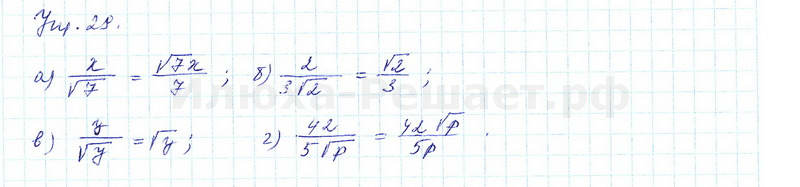 Упр. 29.
а) x/√7 = √7x/7 ; б) 2/3√2 = √2/3 ;
в) y/√y = √y ; г) 42/5√p = 42√p/5p .
Илюха-Решает.рф